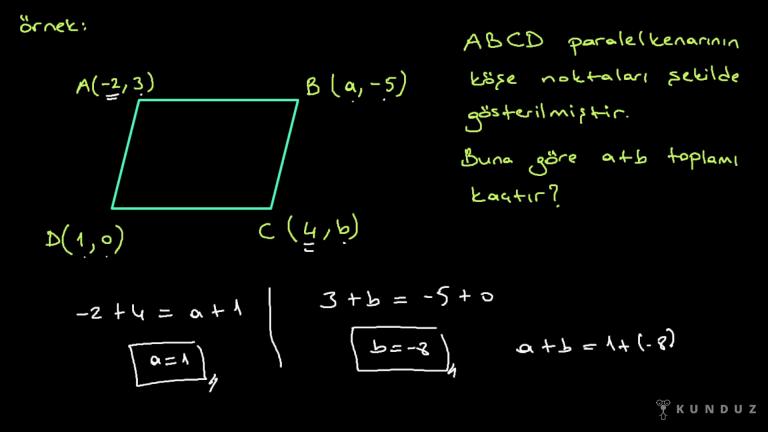 örnek:
ABCD paralelkenarının
köşe noktaları şekilde
gösterilmiştir.
Buna göre a+b toplamı
kaçtır?
A(-2,3)
B (a,-5)
D(1,0)
C (4,b)
-2+4 = a+1
a=1
3+b = -5+0
b=-8
a+b = 1+(-8)
KUNDUZ